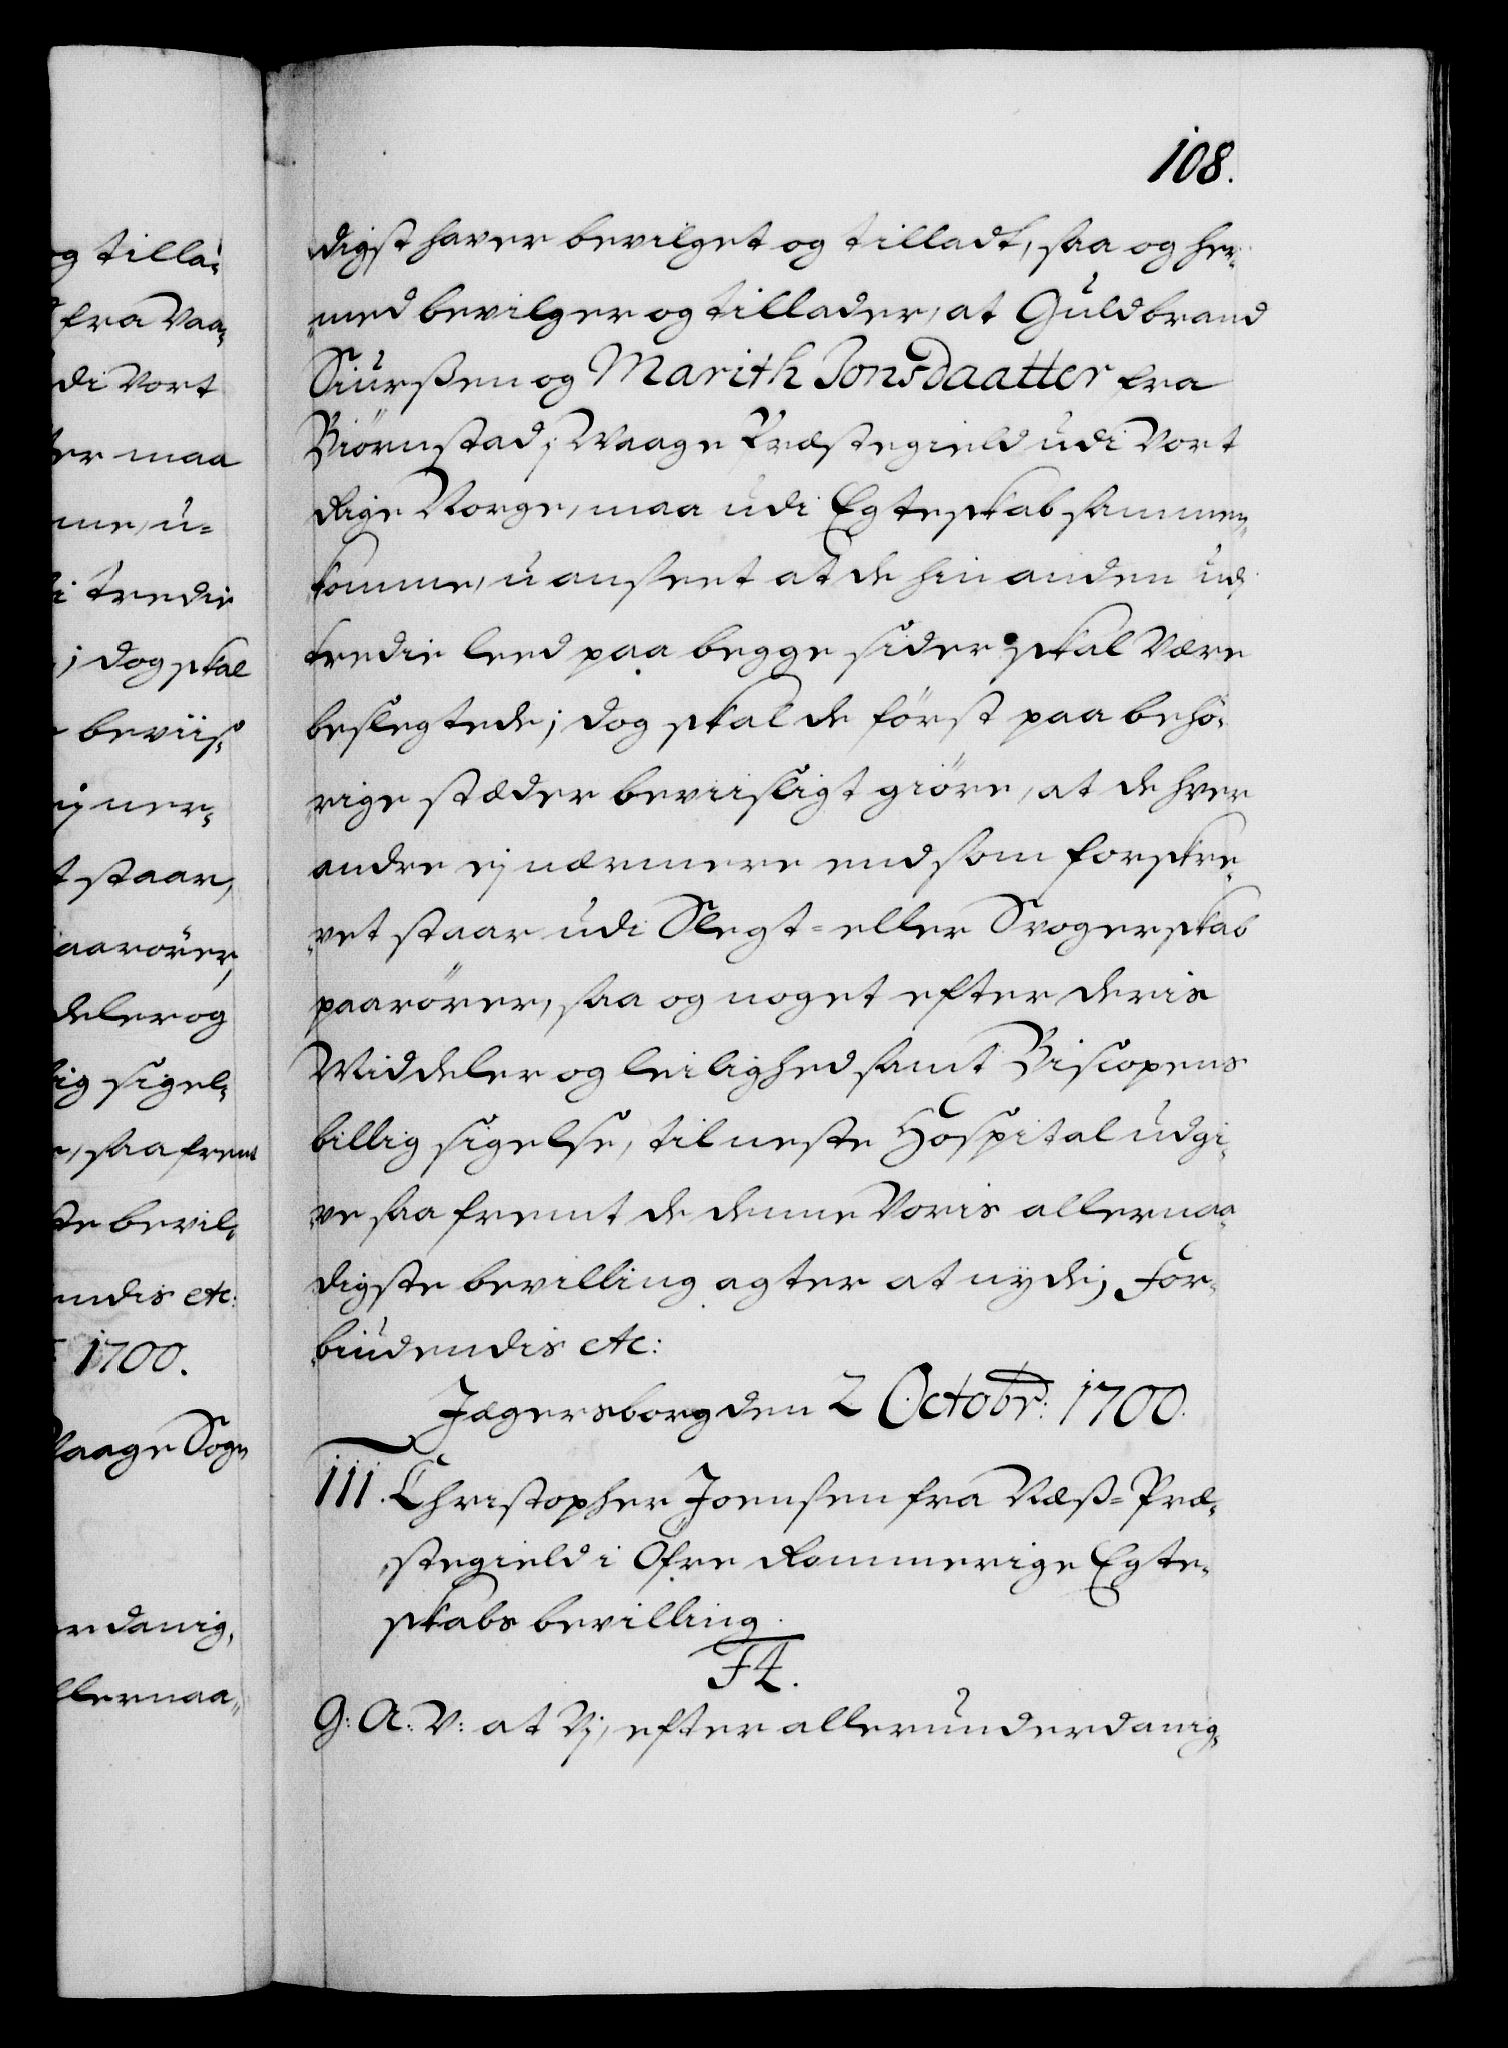 108.
digst haver bevilget og tilladt, saa og her-
med bevilger og tillader, at Guldbrand
Siurßen og Marith Jonsdaatter fra
Biörnstad i Waage Præstegield udi Vort
Rige Norge, maa udi Egteskab sammen-
komme, uanseet at de hin anden udi
tredie leed paa begge sider skal være
beslegtede; dog skal de först paa behö-
rige stæder beviisligt giöre, at de hver
andre ej nærmere end som forskre-
vet staar udi Slegt- eller Svogerskab
paarörer, saa og noget efter deris
Middeler og leilighed samt Biscopens
billig sigelse, til neste Hospital udgi-
ve saafremt de denne Voris allernaa-
digste bevilling agter at nyde; For-
biudendis etc:
Jægersborg den 2 Octobr: 1700.
111. Christopher Joensen fra Næß-Præ-
stegield i Öfre Rommerige Egte-
skabs bevilling.
F4.
G: A: V: at Vj, efter allerunderdanig-
og tilla-
fra Vaa-
di Vort
er maa
me, u-
i tredie
; dog skal
beviis-
ej ner-
t staar,
aarörer,
deler og
ig sigel-
, saa fremt
te bevil-
endis etc:
1700.
Vaage Sogn
erdanig,
llernaa-